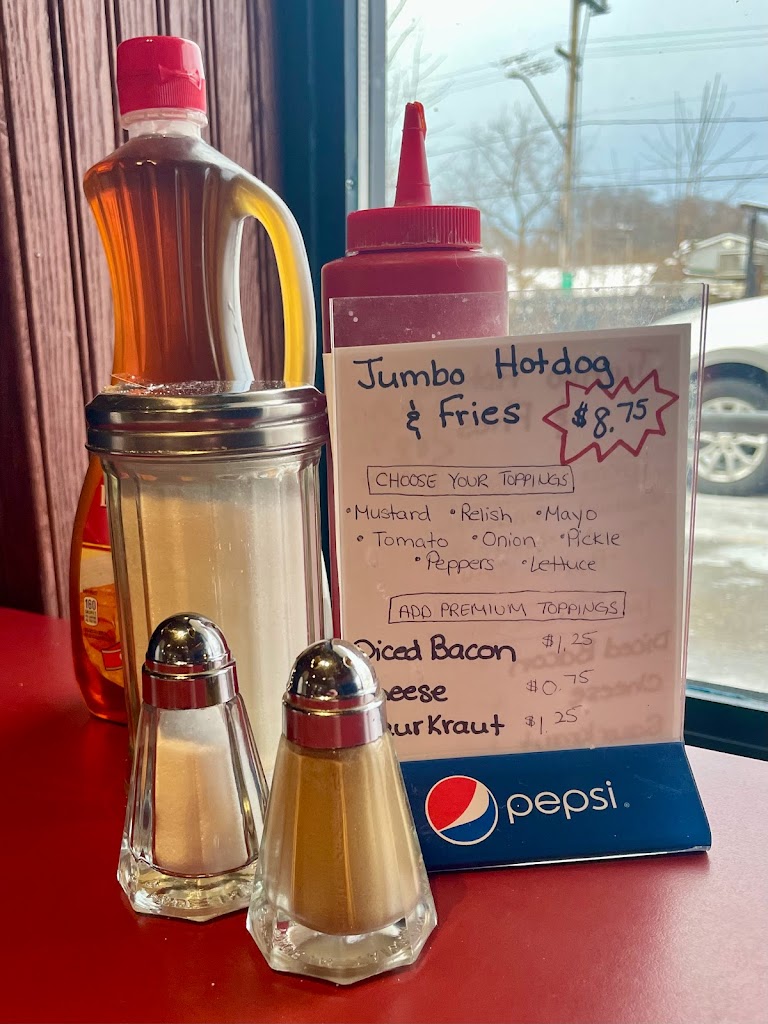 Jumbo Hotdog
& Fries $8.75
CHOOSE YOUR TOPPINGS
•Mustard •Relish •Mayo
•Tomato •Onion •Pickle
•Peppers •Lettuce
ADD PREMIUM TOPPINGS
Diced Bacon $1.25
eese $0.75
urKraut $1.25
pepsi
160